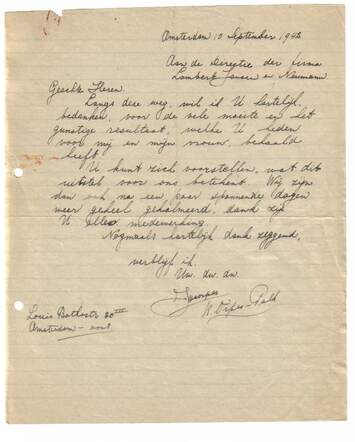 Amsterdam 10 September 1942
Aan de Directie der firma
Lambert Jansen en Neumann.
Geachte Heren.
Langs deze weg, wil ik U hartelijk
bedanken, voor de vele moeite en het
gunstige resultaat, welke U heden
voor mij en mijn vrouw, behaald
heeft.
U kunt zich voorstellen, wat dit
uitstel voor ons betekent. Wij zijn
dan ook na een paar spannende dagen
weer geheel gekalmeerd, dank zij
U aller medewerking.
Nogmaals hartelijk dank zeggend,
verblijf ik.
Uw. dw. dn.
Louis Bothastr 20
Amsterdam - oost.